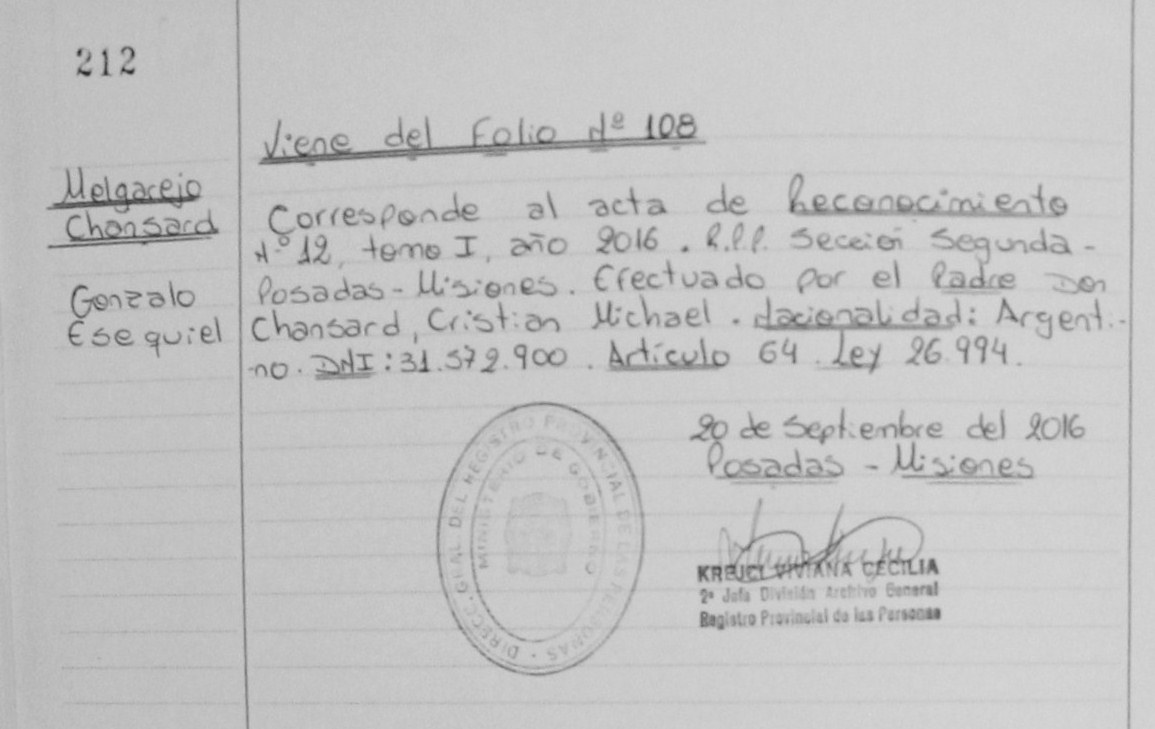 212
Viene del Folio Nº 108
Melgarejo
Chansard
Gonzalo
Esequiel
Corresponde al acta de Reconocimiento
Nº 12, tomo I, año 2016. R.P.P. Sección Segunda-
Posadas - Misiones. Efectuado por el Padre Don
Chansard, Cristian Michael. Nacionalidad: Argenti-
no. DNI: 31.572.900. Artículo 64 Ley 26.994.
20 de Septiembre del 2016
Posadas - Misiones
DIRECC. GRAL. DEL REGISTRO PROVINCIAL DE LAS PERSONAS
MINISTERIO DE GOBIERNO
KREJCI VIVIANA CECILIA
2ª Jefa División Archivo General
Registro Provincial de las Personas